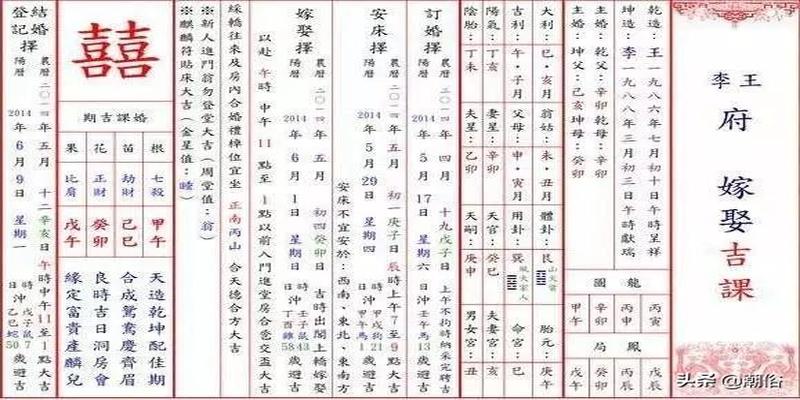 李王
府
嫁娶
吉課
乾造：王一九八六年七月初十日午時呈祥
坤造：李一九八八年初三日午時獻瑞
主婚：乾父：辛卯乾母：辛卯
主婚：坤父：己亥坤母：癸卯
龍圖
丙寅
丙申
辛卯
甲午
鳳局
戊辰
丙辰
癸卯
戊午
大利：巳·亥月
吉利：午·子月
陽氣：丁亥
陰胎：丁未
翁姑：未·丑月
父母：申·寅月
妻星：辛卯
夫星：乙卯
體卦：艮
山火賁
用卦：巽
風火家人
天官：癸巳
天嗣：庚申
胎元：庚午
命宮：巳
夫妻宮：丑
男女宮：亥
訂婚擇
農曆二〇一四年四月十九戊子日上午不拘時納采完聘吉
陽曆2014年5月17日星期六日沖壬午馬13歲避吉
安床擇
農曆二〇一四年五月初一庚子日辰時上午7至9點大吉
陽曆2014年5月29日星期四
安床不宜安於：西南、東北、東南方
嫁娶擇
農曆二〇一四年五月初四癸卯日吉時出閣上轎嫁娶
陽曆2014年6月1日星期日
以赴午時中午11點至1點以前入門進堂房合巹交盃大吉
綵轎往來及房內合婚禮棹位宜坐正南丙山合天德合方大吉
※新人進門翁勿登堂大吉（周堂值：翁）
※麒麟符貼床大吉（金星值：睡）
囍
婚課吉期
根
苗
花
果
七殺
劫財
正財
比肩
甲午
己巳
癸卯
戊午
天造乾坤配佳期
合成鴛鴦慶齊眉
良時吉日洞房會
緣定富貴產麟兒
結婚登記擇
農曆二〇一四年五月十二辛亥日午時中午11至1點大吉
陽曆2014年6月9日星期一
頭条 @潮俗